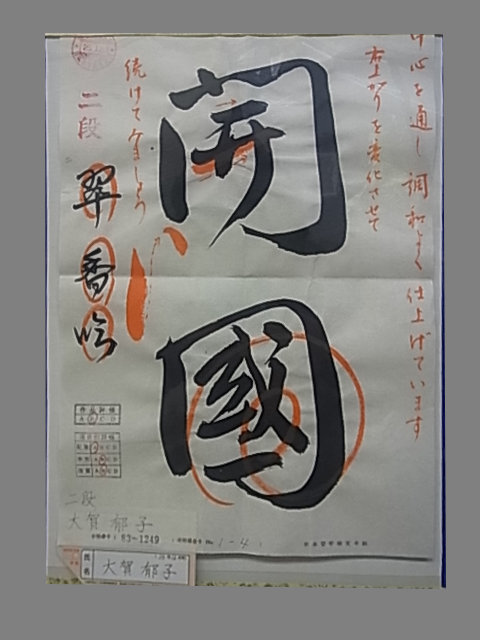 中心を通し調和よく仕上げています
右上がりを変化させて
続けてみましょう
開
國
二段
翠香吟
二段
大賀 郁子
63-1249
1-4
氏名
大賀 郁子